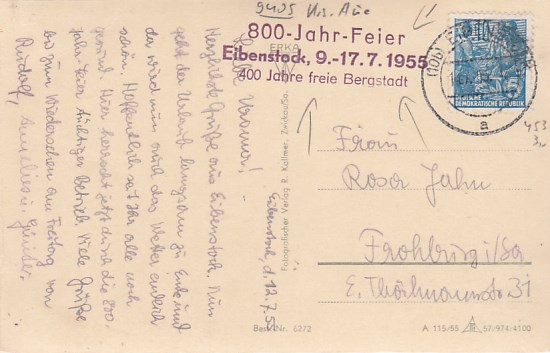 9405 Krs. Aue
800-Jahr-Feier
Eibenstock, 9.-17.7.1955
400 Jahre freie Bergstadt
ERKA
DEUTSCHE
DEMOKRATISCHE REPUBLIK
(10b)
a
453
Herzliche Grüße aus Eibenstock. Nun
geht der Urlaub langsam zu Ende und
da wird nun auch das Wetter endlich
schön. Hoffentlich seid Ihr alle noch
gesund. Hier herrscht jetzt durch die 800-
Jahr-Feier tüchtiger Betrieb. Viele Grüße
bis zum Wiedersehen am Freitag von
Rudolf, Annelies u. Günter.
Eibenstock, d. 12.7.55
Fotografischer Verlag R. Kallmer, Zwickau/Sa.
Frau
Rosa Jahn
Frohburg i/Sa
E. Thälmannstr 31
Best.-Nr. 6272
A 115/55 57/974/4100